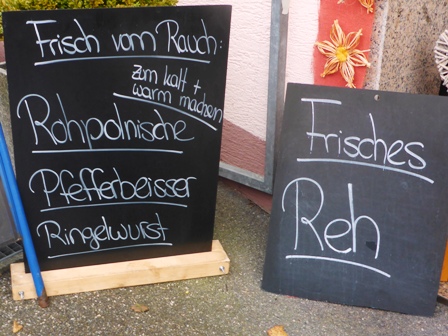 Frisch vom Rauch:
zom kalt +
warm machen
Rohpolnische
Pfefferbeisser
Ringelwurst
Frisches
Reh